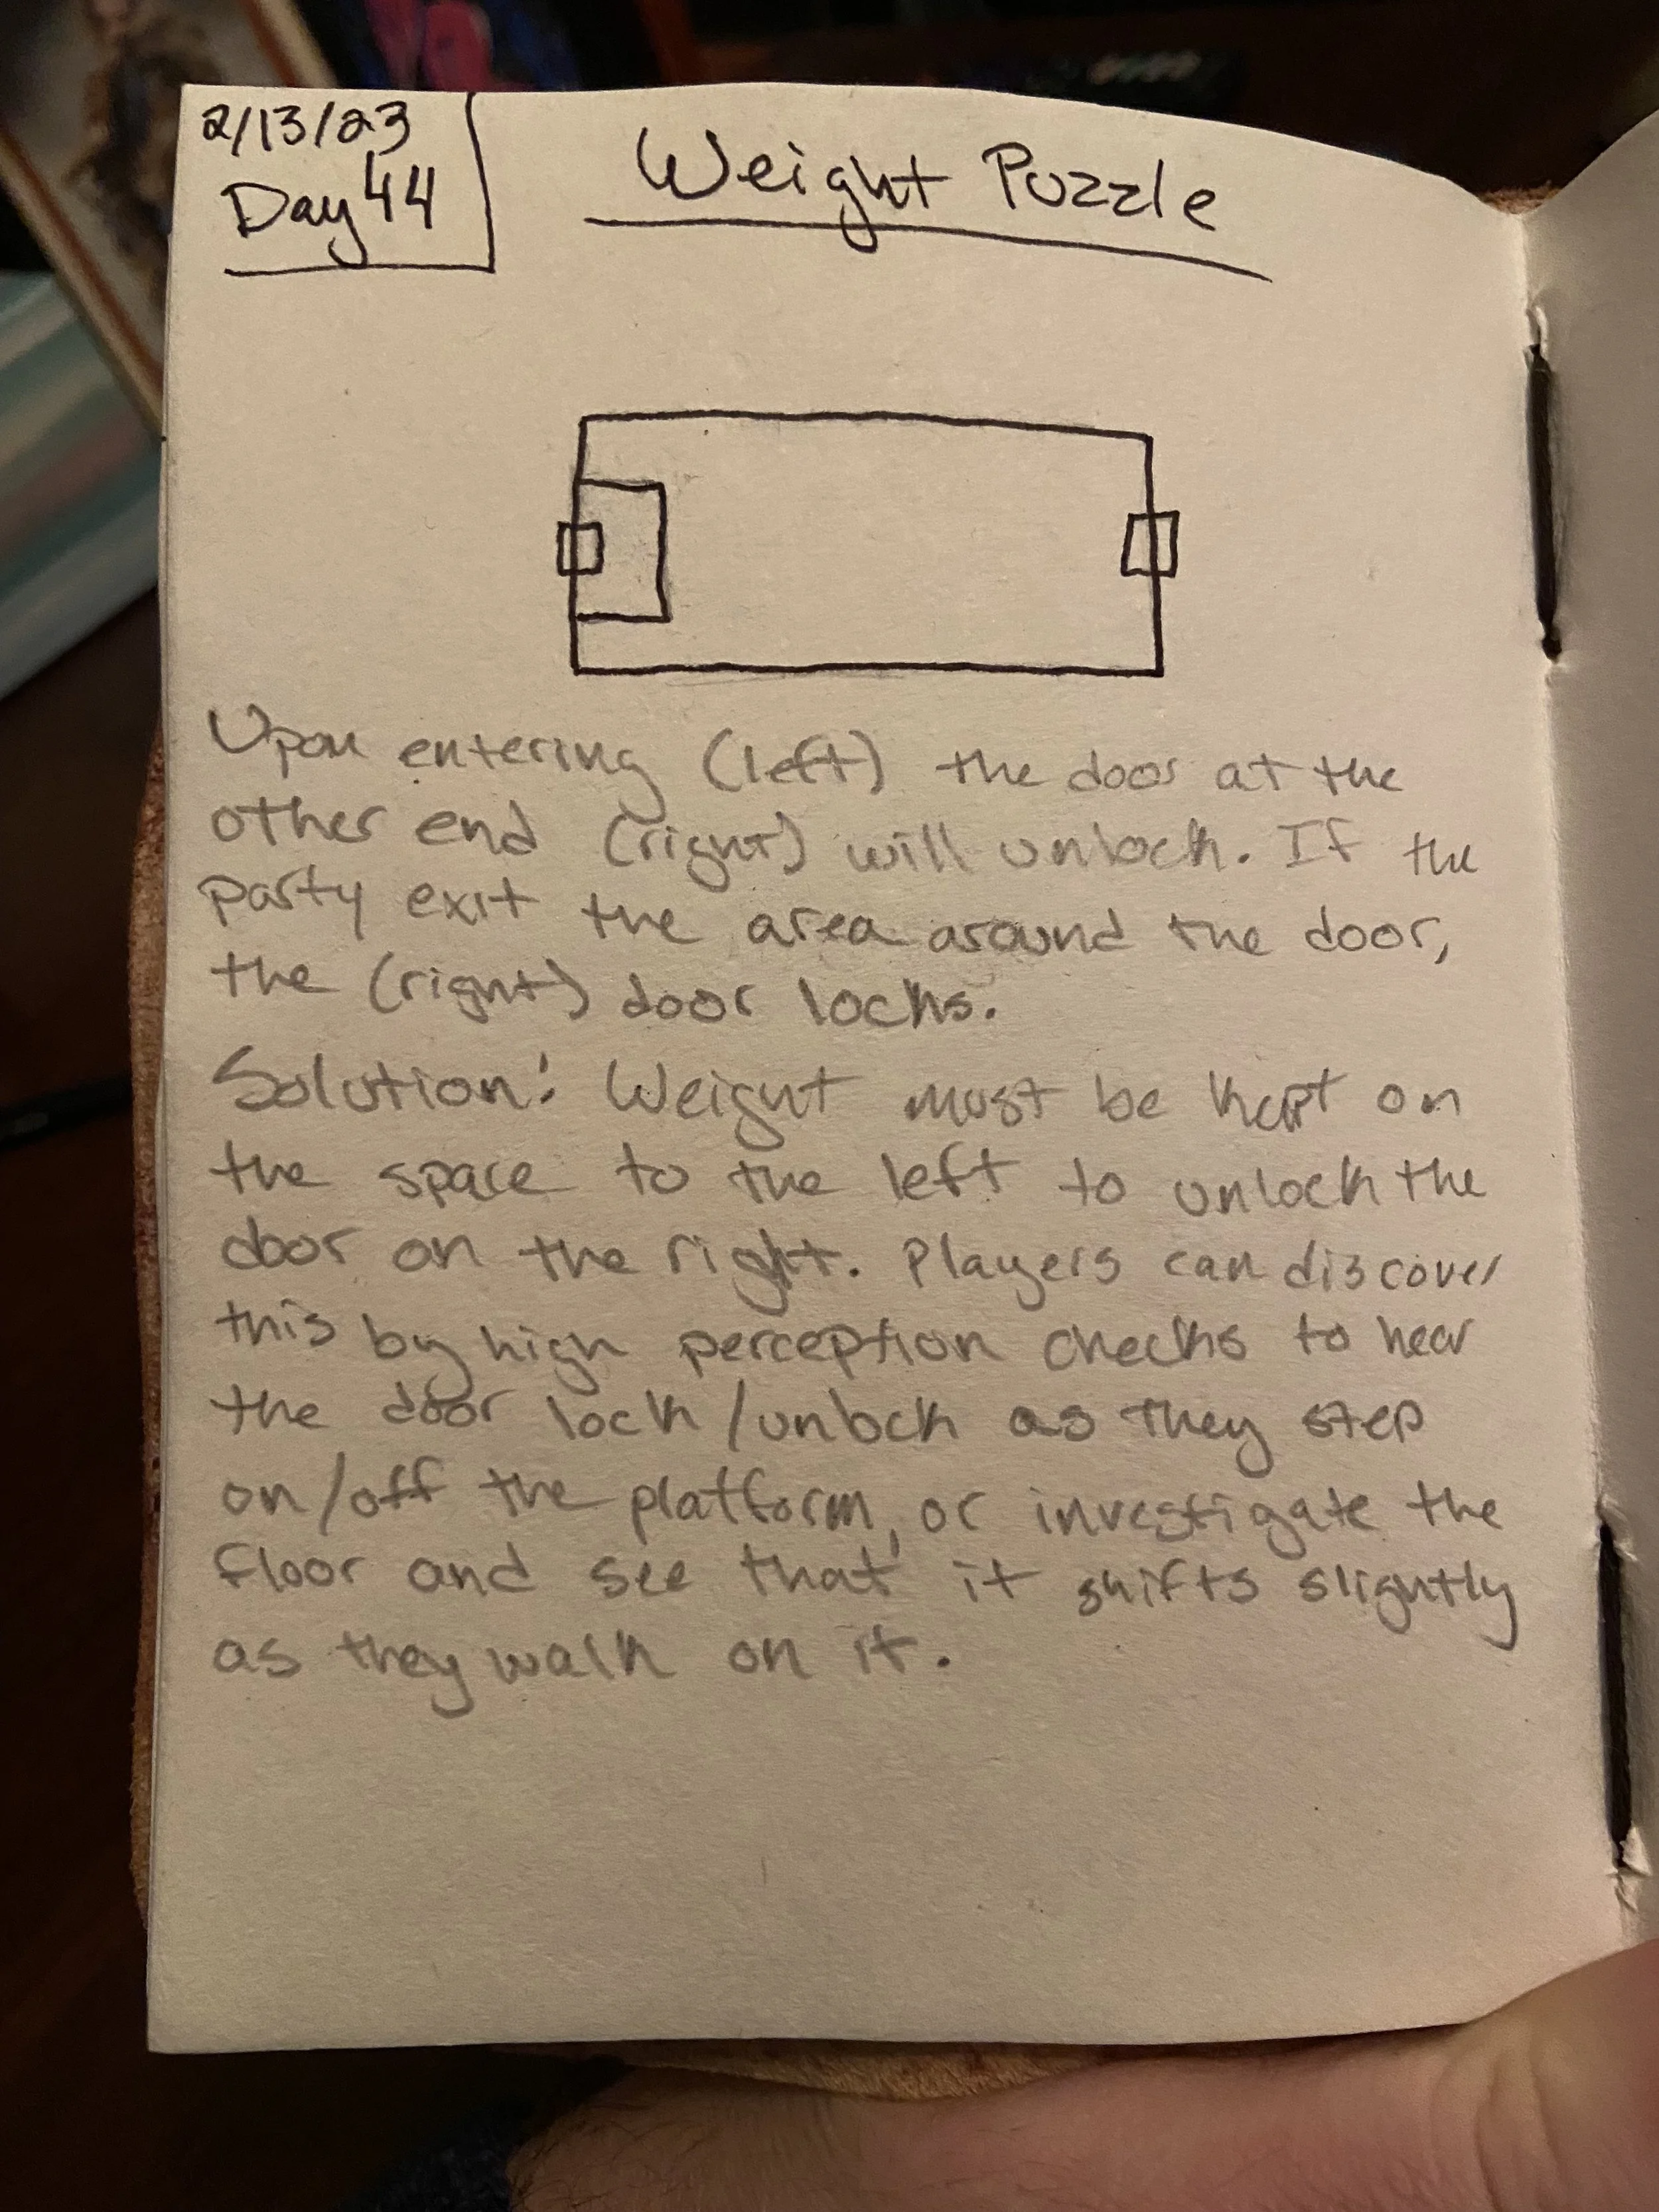 2/13/23
Day 44
Weight Puzzle
Upon entering (left) the door at the
other end (right) will unlock. If the
party exit the area around the door,
the (right) door locks.
Solution: Weight must be kept on
the space to the left to unlock the
door on the right. Players can discover
this by high perception checks to hear
the door lock/unlock as they step
on/off the platform, or investigate the
floor and see that it shifts slightly
as they walk on it.